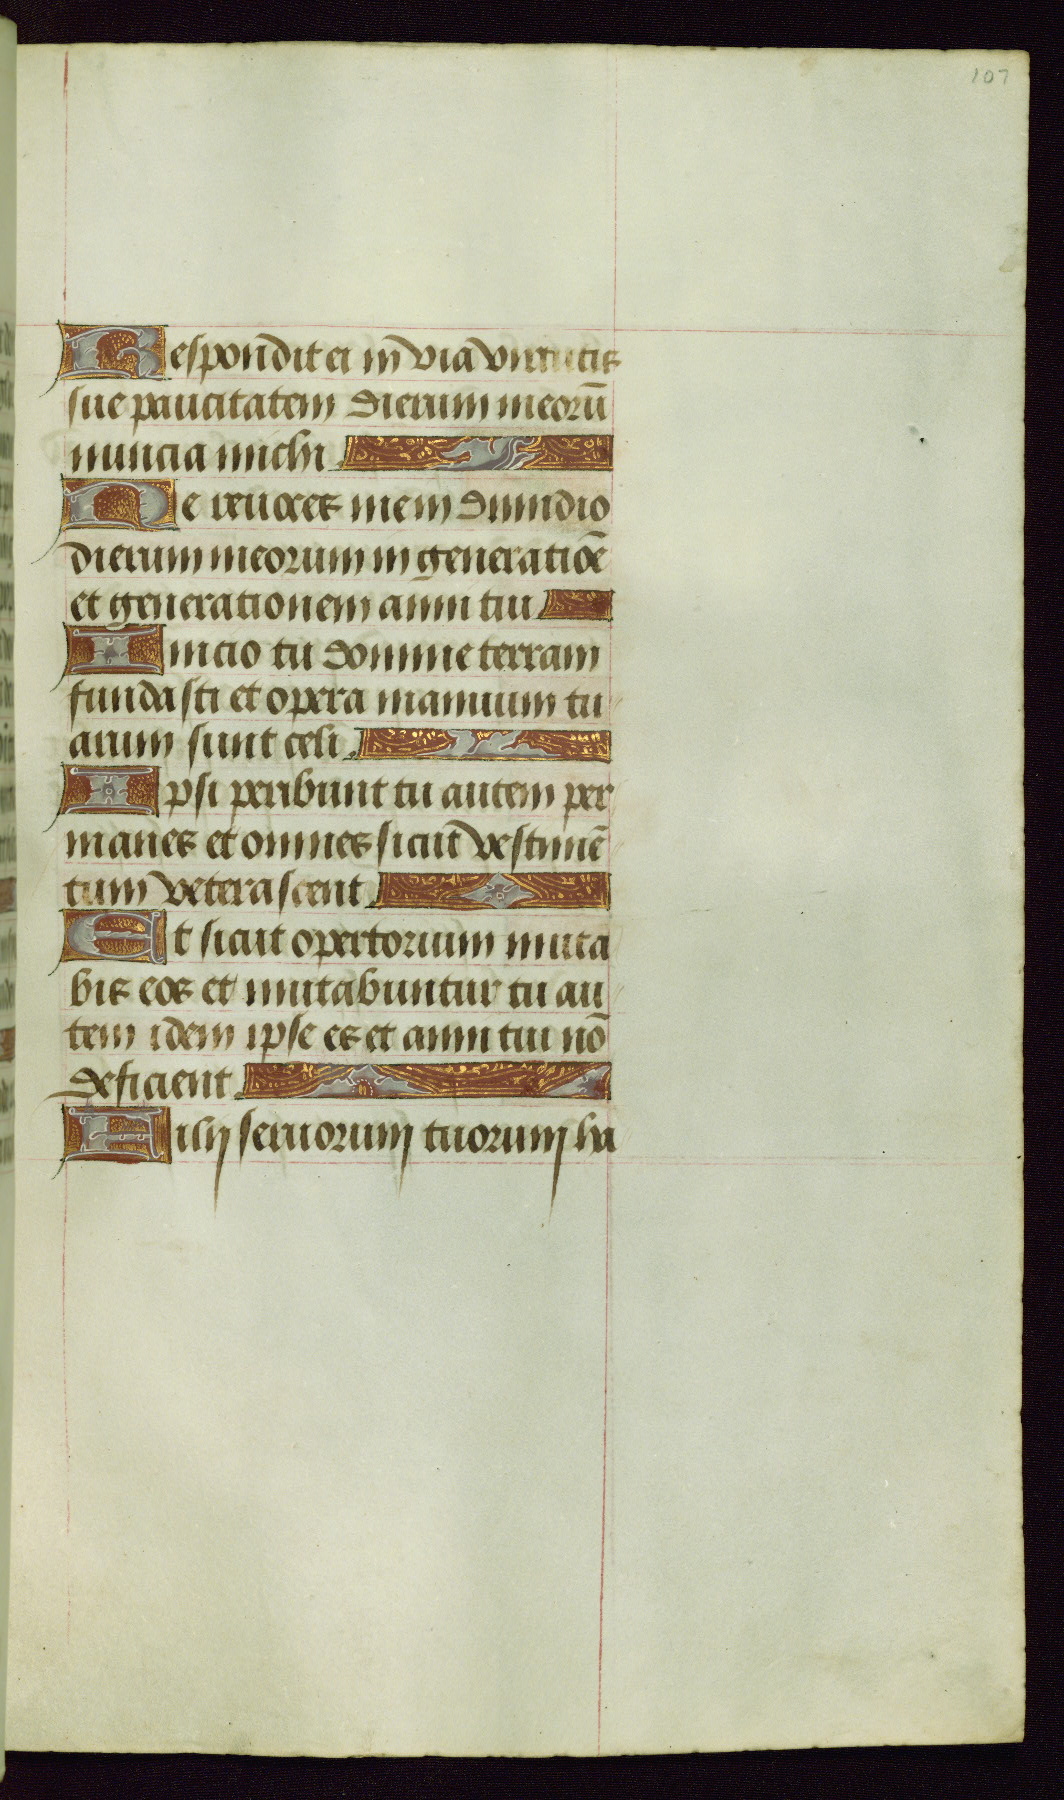 107
Respondit ei in via virtutis
sue paucitatem dierum meorū
nuncia michi
Ne revoces me in dimidio
dierum meorum in generatiōe
et generationem anni tui
Inicio tu domine terram
fundasti et opera manuum tu
arum sunt celi
Ipsi peribunt tu autem per
manes et omnes sicut vestimē
tum veterascent
Et sicut opertorium muta
bis eos et mutabuntur tu au
tem idem ipse es et anni tui nō
deficient
Filij servorum tuorum ha